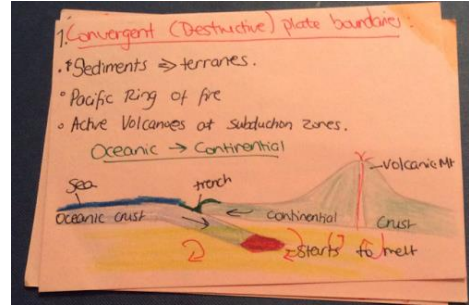 1. Convergent (Destructive) plate boundaries:
• Sediments ⇒ terranes.
• Pacific Ring of fire
• Active Volcanoes at subduction zones.
Oceanic → Continential
Sea
trench
Volcanic Mt
Oceanic crust
Continential Crust
Starts to melt